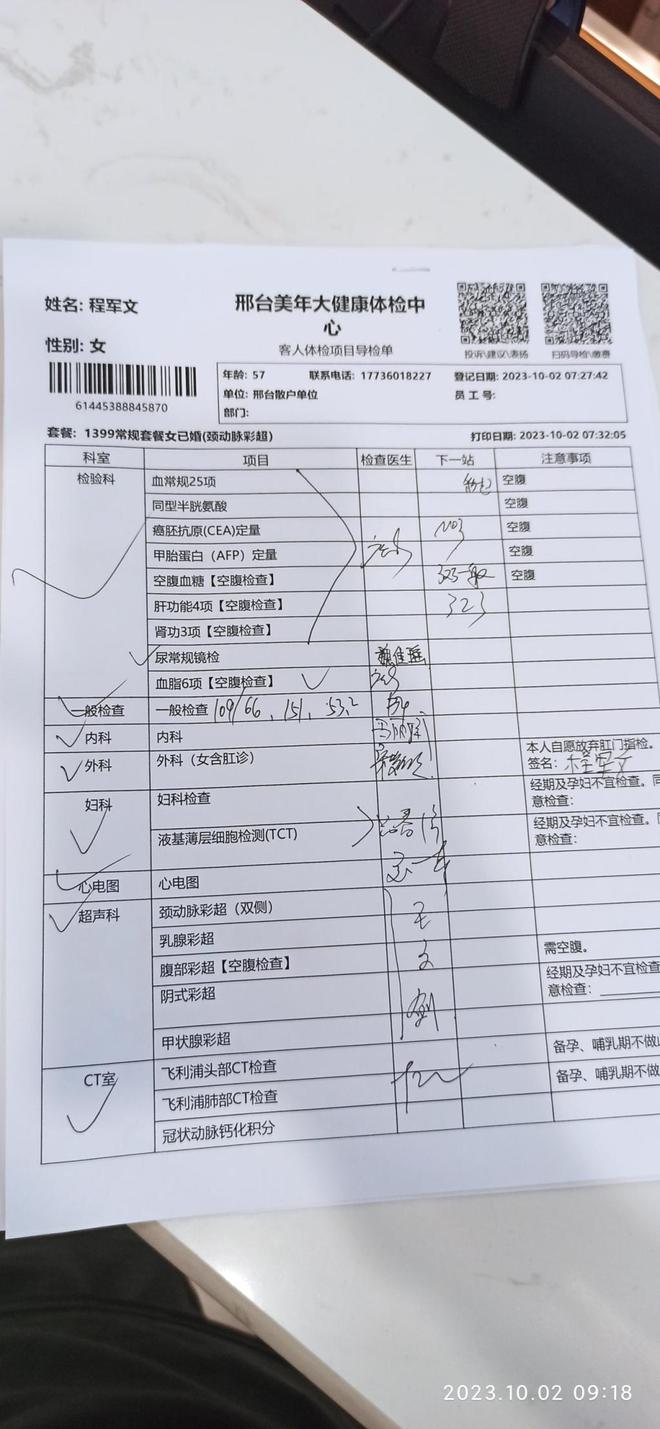 姓名: 程军文
邢台美年大健康体检中
心
性别: 女
客人体检项目导检单
投诉\建议\表扬
扫码导检\缴费
61445388845870
年龄: 57 联系电话: 17736018227 登记日期: 2023-10-02 07:27:42
单位: 邢台散户单位 员工号:
部门:
套餐: 1399常规套餐女已婚(颈动脉彩超) 打印日期: 2023-10-02 07:32:05
科室 项目 检查医生 下一站 注意事项
检验科 血常规25项 空腹
同型半胱氨酸 空腹
癌胚抗原(CEA)定量 空腹
甲胎蛋白（AFP）定量 空腹
空腹血糖【空腹检查】 空腹
肝功能4项【空腹检查】 323
肾功3项【空腹检查】
尿常规镜检
血脂6项【空腹检查】
一般检查 一般检查 109/66 , 151 , 53.2
内科 内科
外科 外科（女含肛诊） 本人自愿放弃肛门指检。
签名: 程军文
妇科 妇科检查 经期及孕妇不宜检查。同
意检查:
液基薄层细胞检测(TCT) 经期及孕妇不宜检查。同
意检查:
心电图 心电图
超声科 颈动脉彩超（双侧） 王
乳腺彩超
腹部彩超【空腹检查】 需空腹。
阴式彩超 经期及孕妇不宜检查
意检查:
甲状腺彩超
CT室 飞利浦头部CT检查 备孕、哺乳期不做
飞利浦肺部CT检查 备孕、哺乳期不做
冠状动脉钙化积分
2023.10.02 09:18